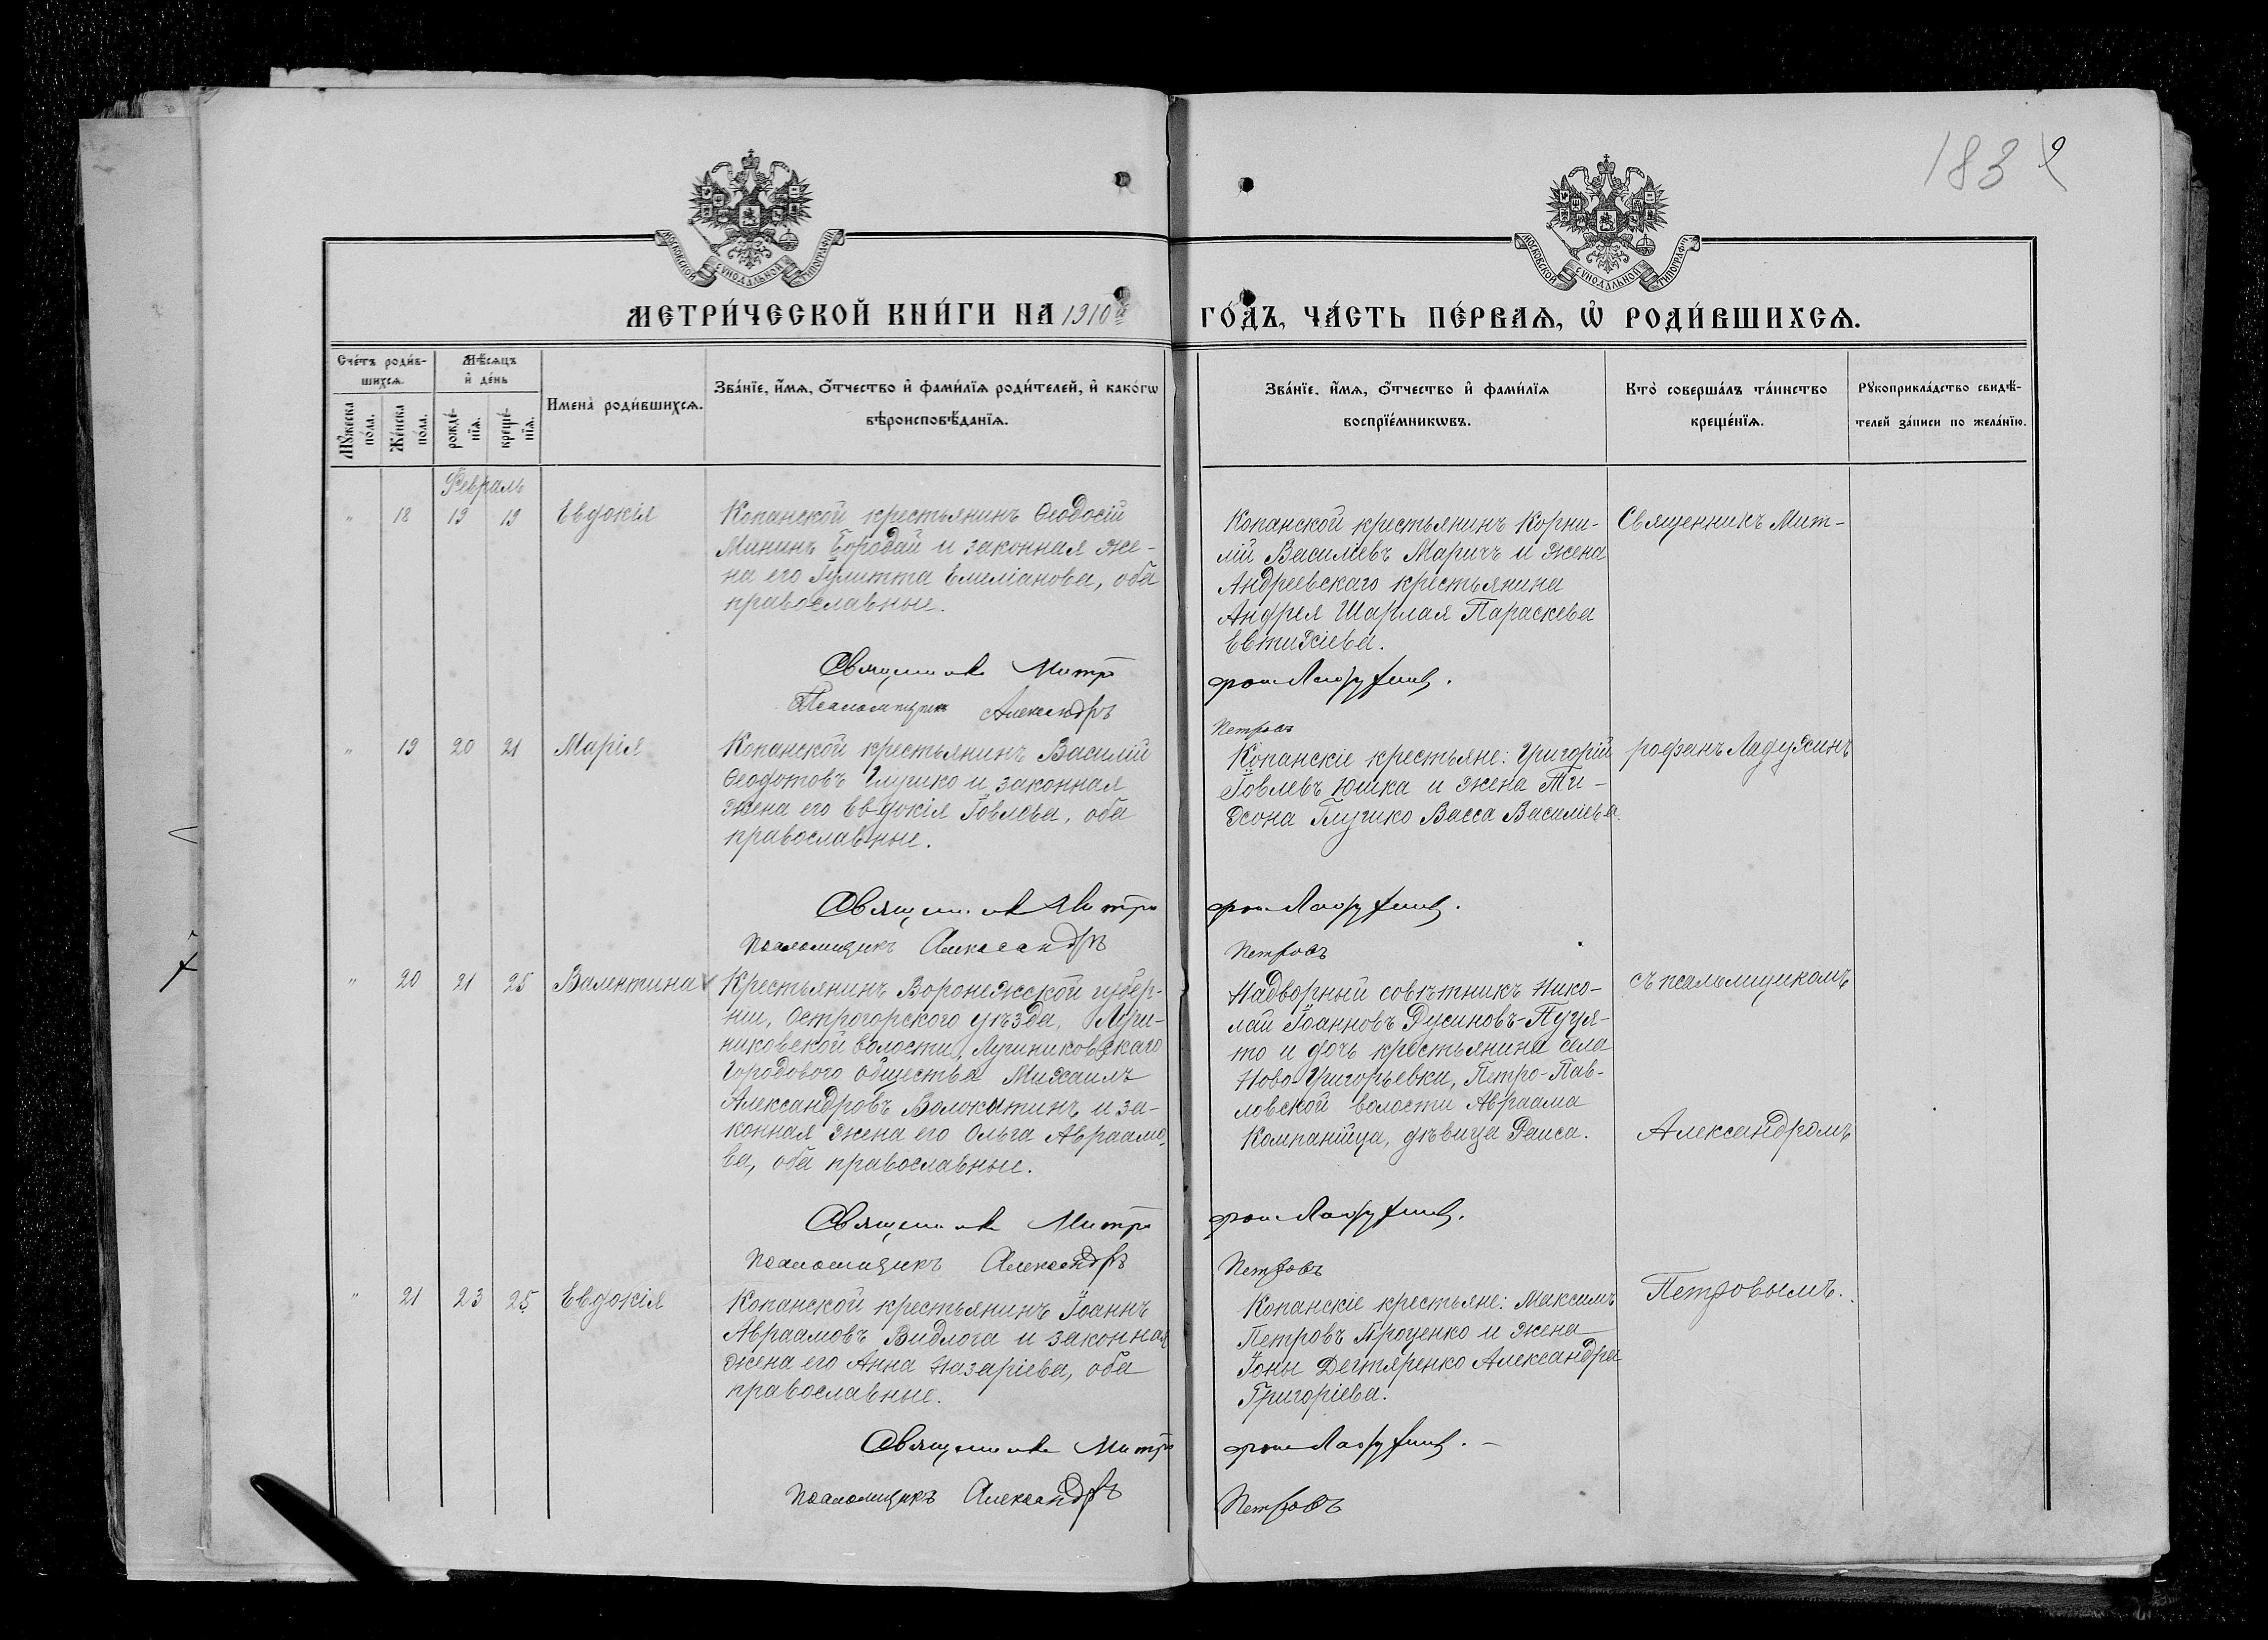 183
МОСКОВСКОЙ СѴНОДАЛЬНОЙ ТИПОГРАФІИ
МОСКОВСКОЙ СѴНОДАЛЬНОЙ ТИПОГРАФІИ
МЕТРИ́ЧЕСКОЙ КНИ́ГИ НА 1910й ГО́ДЪ, ЧА́СТЬ ПЕ́РВАѦ, Ѡ҆ РОДИ́ВШИХСѦ.
Сче́тъ роди́в-
шихсѧ.
Мꙋ́жеска по́ла.
Же́нска по́ла.
Мѣ́сѧцъ
и҆ де́нь
рожде́-
нїѧ.
креще́-
нїѧ.
Имена̀ роди́вшихсѧ.
Зва́нїе, и҆́мѧ, ѻ҆́тчество и҆ фами́лїѧ роди́телей, и҆ како́гѡ
вѣроисповѣ́данїѧ.
Зва́нїе, и҆́мѧ, ѻ҆́тчество и҆ фами́лїѧ
воспрїе́мникѡвъ.
Кто̀ соверша́лъ та́инство
креще́нїѧ.
Рꙋкоприкла́дство свидѣ́-
телей за́писи по жела́нїю.
Февраль
" 18 19 19 Евдокія
Копанской крестьянинъ Ѳеодосій
Мининъ Бородай и законная же-
на его Іулитта Емеліанова, оба
православные.
Священникъ Митро
Псаломщикъ Александръ
Копанской крестьянинъ Корни-
лій Василіевъ Маричъ и жена
Андреевскаго крестьянина
Андрея Шарлая Параскева
Евтихіева.
фанъ Ладухинъ.
Петровъ
Священникъ Мит-
" 19 20 21 Марія
Копанской крестьянинъ Василій
Ѳеодотовъ Глушко и законная
жена его Евдокія Іовлева, оба
православные.
Священникъ Митро
Псаломщикъ Александръ
Копанскіе крестьяне: Григорій
Іовлевъ Юшка и жена Ти-
хона Глушко Васса Василіева.
фанъ Ладухинъ.
Петровъ
рофанъ Ладухинъ
" 20 21 25 Валентина
Крестьянинъ Воронежской губер-
ніи, Острогорского уѣзда,
никовской волости,
Городового общества Михаилъ
Александровъ Волокитинъ и за-
конная жена его Ольга Авраамо-
ва, оба православные.
Священникъ Митро
Псаломщикъ Александръ
Надворный совѣтникъ Нико-
лай Іоанновъ Дусиновъ-Пуля-
то и дочь крестьянина села
Ново-Григорьевки, Петро-Пав-
ловской волости Авраама
Компанійца, дѣвица Раиса.
фанъ Ладухинъ.
Петровъ
съ псаломщикомъ
Александромъ
" 21 23 25 Евдокія
Копанской крестьянинъ Іоаннъ
Авраамовъ Видлога и законная
жена его Анна Назаріева, оба
православные.
Священникъ Митро
Псаломщикъ Александръ
Копанскіе крестьяне: Максимъ
Петровъ Проценко и жена
Іоны Дегтяренко Александра
Григоріева.
фанъ Ладухинъ. -
Петровъ
Петровымъ.